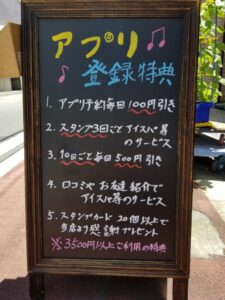 アプリ♫
♪登録特典
1. アプリ予約毎日100円引き
2. スタンプ3回ごとアイスパ等
のサービス
3. 10日ごと毎日500円引き
4. 口コミやお友達紹介で
アイスパ等のサービス
5. スタンプカード 20個以上で
当店より感謝プレゼント
※3500円以上ご利用の特典